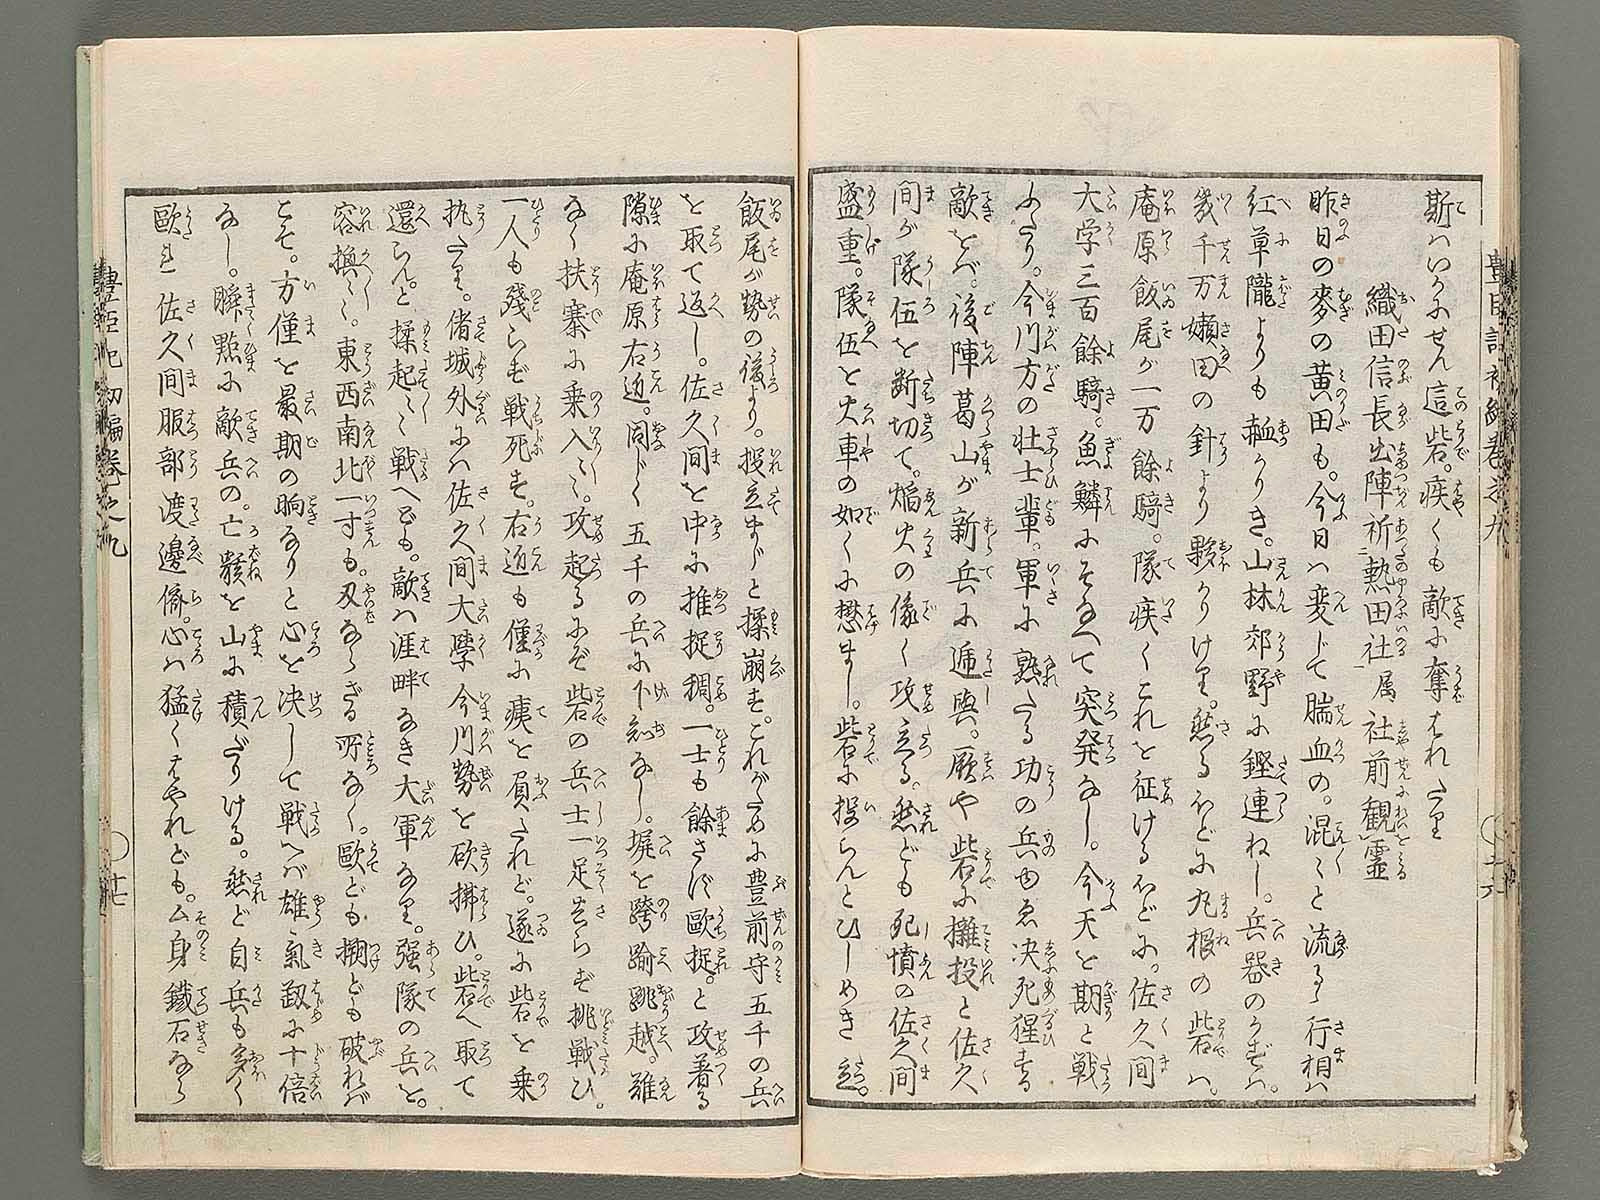 斯ハいかにせん這砦。疾くも敵に奪はれたり
織田信長出陣祈熱田社 属 社前観霊
昨日の麥の黄田も。今日ハ変じて腨血の。混〻と流るゝ行相ハ
紅草隴よりも赩かりき。山林郊野に鏗連ねし。兵器のかずハ。
幾千万嬾田の針より夥かりけり。然るほどに丸根の砦ハ。
庵原飯尾が一万餘騎。隊疾くこれを征けるほどに。佐久間
大学三百餘騎。魚鱗にそなへて突発なし。今天を期と戦
ふたり。今川方の壮士輩。軍に熟たる功の兵ゆゑ决死猩る
敵をバ。後陣葛山が新兵に逓與。厭や砦に攤投と佐久
間が隊伍を断切て。熖火の像く攻立る。然ども死憤の佐久間
盛重。隊伍を火車の如くに懋まし。砦に投らんとひしめき立。
飯尾が勢の後より。投立まじと揉崩す。これがために豊前守五千の兵
を取て返し。佐久間を中に推捉稠。一士も餘さず歐捉。と攻着る
隙に庵原右近。同じく五千の兵に下知なし。塀を跨踰跳越。難
なく扶寨に乗入〻。攻起るにぞ砦の兵士一足さらず挑戦ひ。
一人も殘らず戦死す。右近も僅に痍を負たれど。遂に砦を乗
执たり。偖城外にハ佐久間大學今川勢を砍拂ひ。砦へ取て
還らん。と揉起〻戦へども。敵ハ涯畔なき大軍なり。强隊の兵を。
容換〻。東西南北一寸も。刄ならざる所なく。歐ども搠ども破れバ
こそ。方僅を最期の晌なりと心を决して戦へバ雄氣㪟に十倍
なし。瞬㸃に敵兵の。亡骸を山に積だりける。然ど自兵も多く
歐れ佐久間服部渡邊儕。心ハ猛くはやれども。厶身鐵石なら
豊臣記初編巻之九
十六
豊臣記初編巻之九
十七